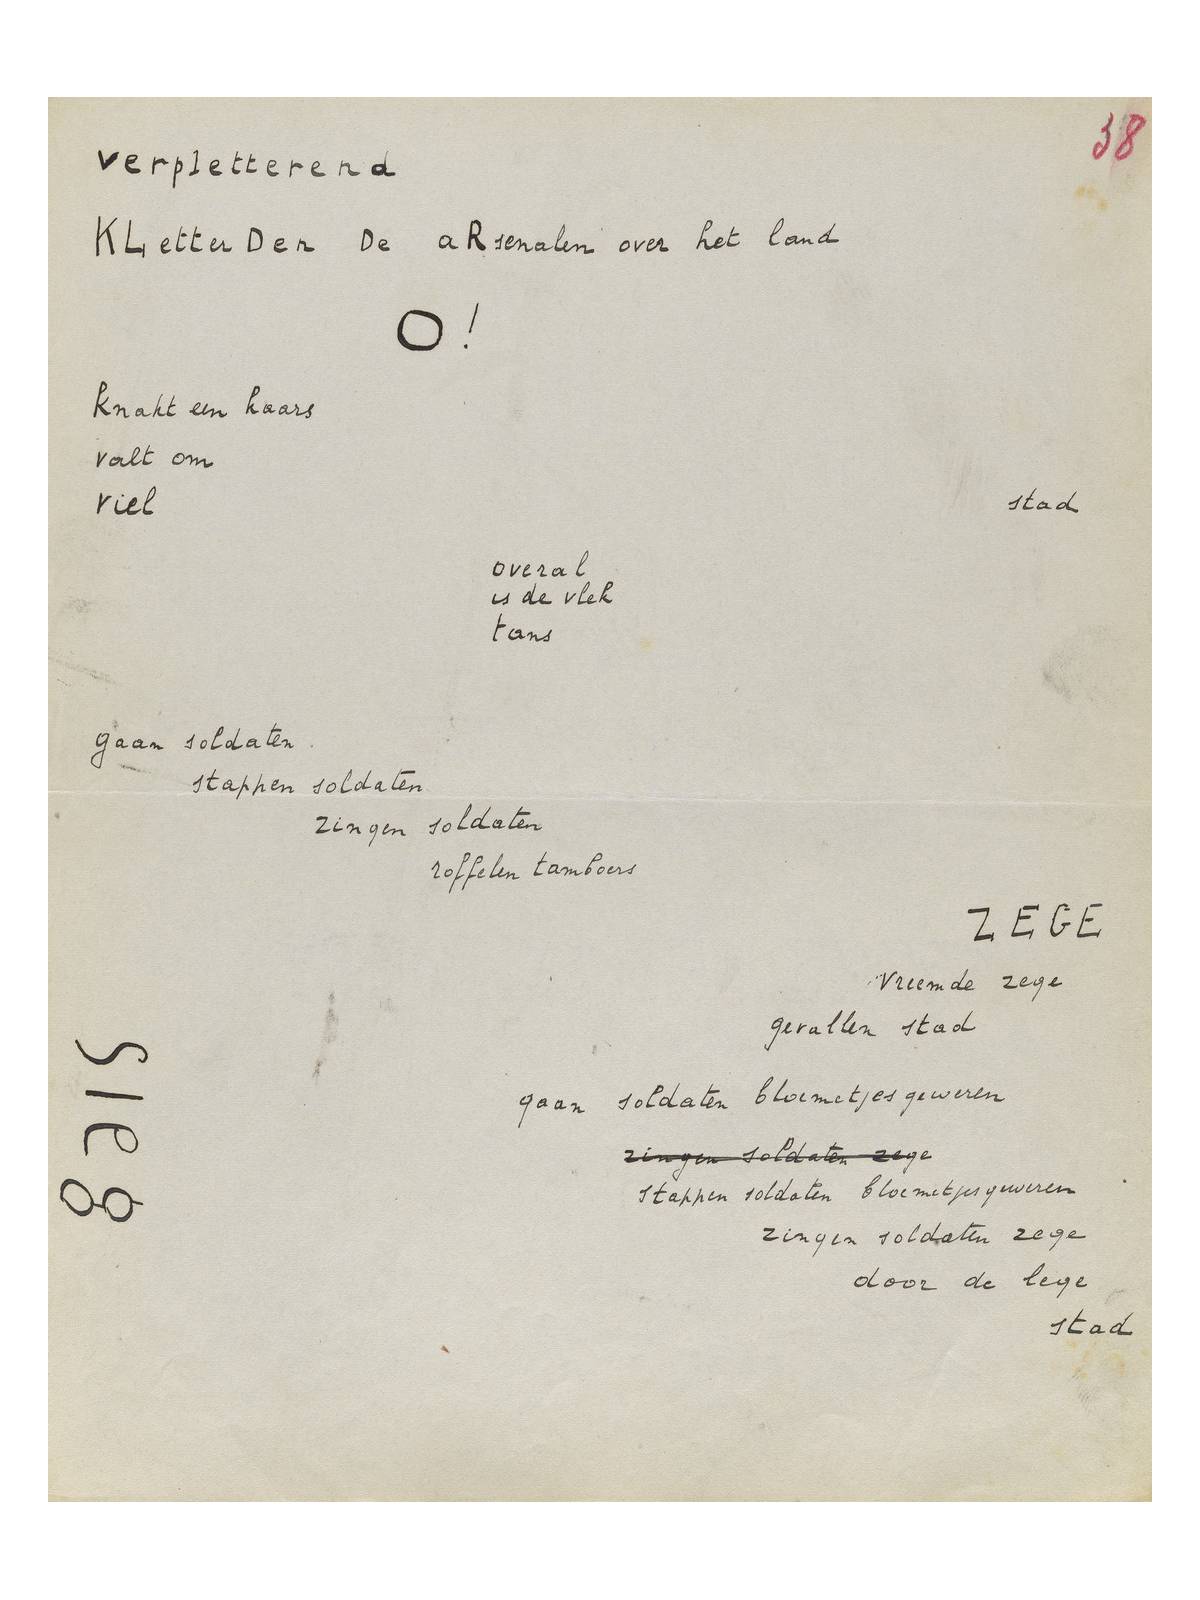 38
verpletterend
KLetterDen De aRsenalen over het land
O!
knakt een kaars
valt om
viel stad
overal
is de vlek
tans
gaan soldaten
stappen soldaten
zingen soldaten
roffelen tamboers
ZEGE
vreemde zege
gevallen stad
gaan soldaten bloemetjesgeweren
zingen soldaten zege
stappen soldaten bloemetjesgeweren
zingen soldaten zege
door de lege
stad
Sieg